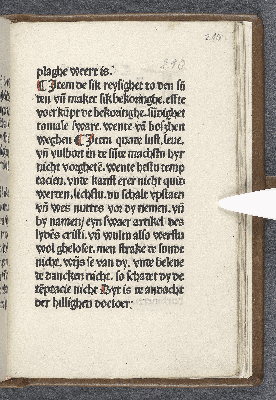 210
plaghe weert is.
Item de sik reysighet to den sū
den vn̄ maket sik bekoringhe. efte
voer kūpt de bekoringhe. sūdighet
tomale sware. wente vā boszhen
weghen Item quade lust, leue,
vn̄ vulbort in de liste machstu hyr
nicht vorghetē. wente hestu temp
tacien. vnde kanst erer nicht quid
werren, sichstu. du schalt vpstaen
vn̄ wes nuttes vor dy nemen. vn̄
by namen eyn swaer artikel des
lydēs cristi. vn̄ wultu also werstu
wol gheloset. men strake to sunde
nicht. wijse se van dy. vnde beleue
te dancken nicht. so schadet dy de
tēptacie nicht Dyt is de andacht
der hillighen doctoer: